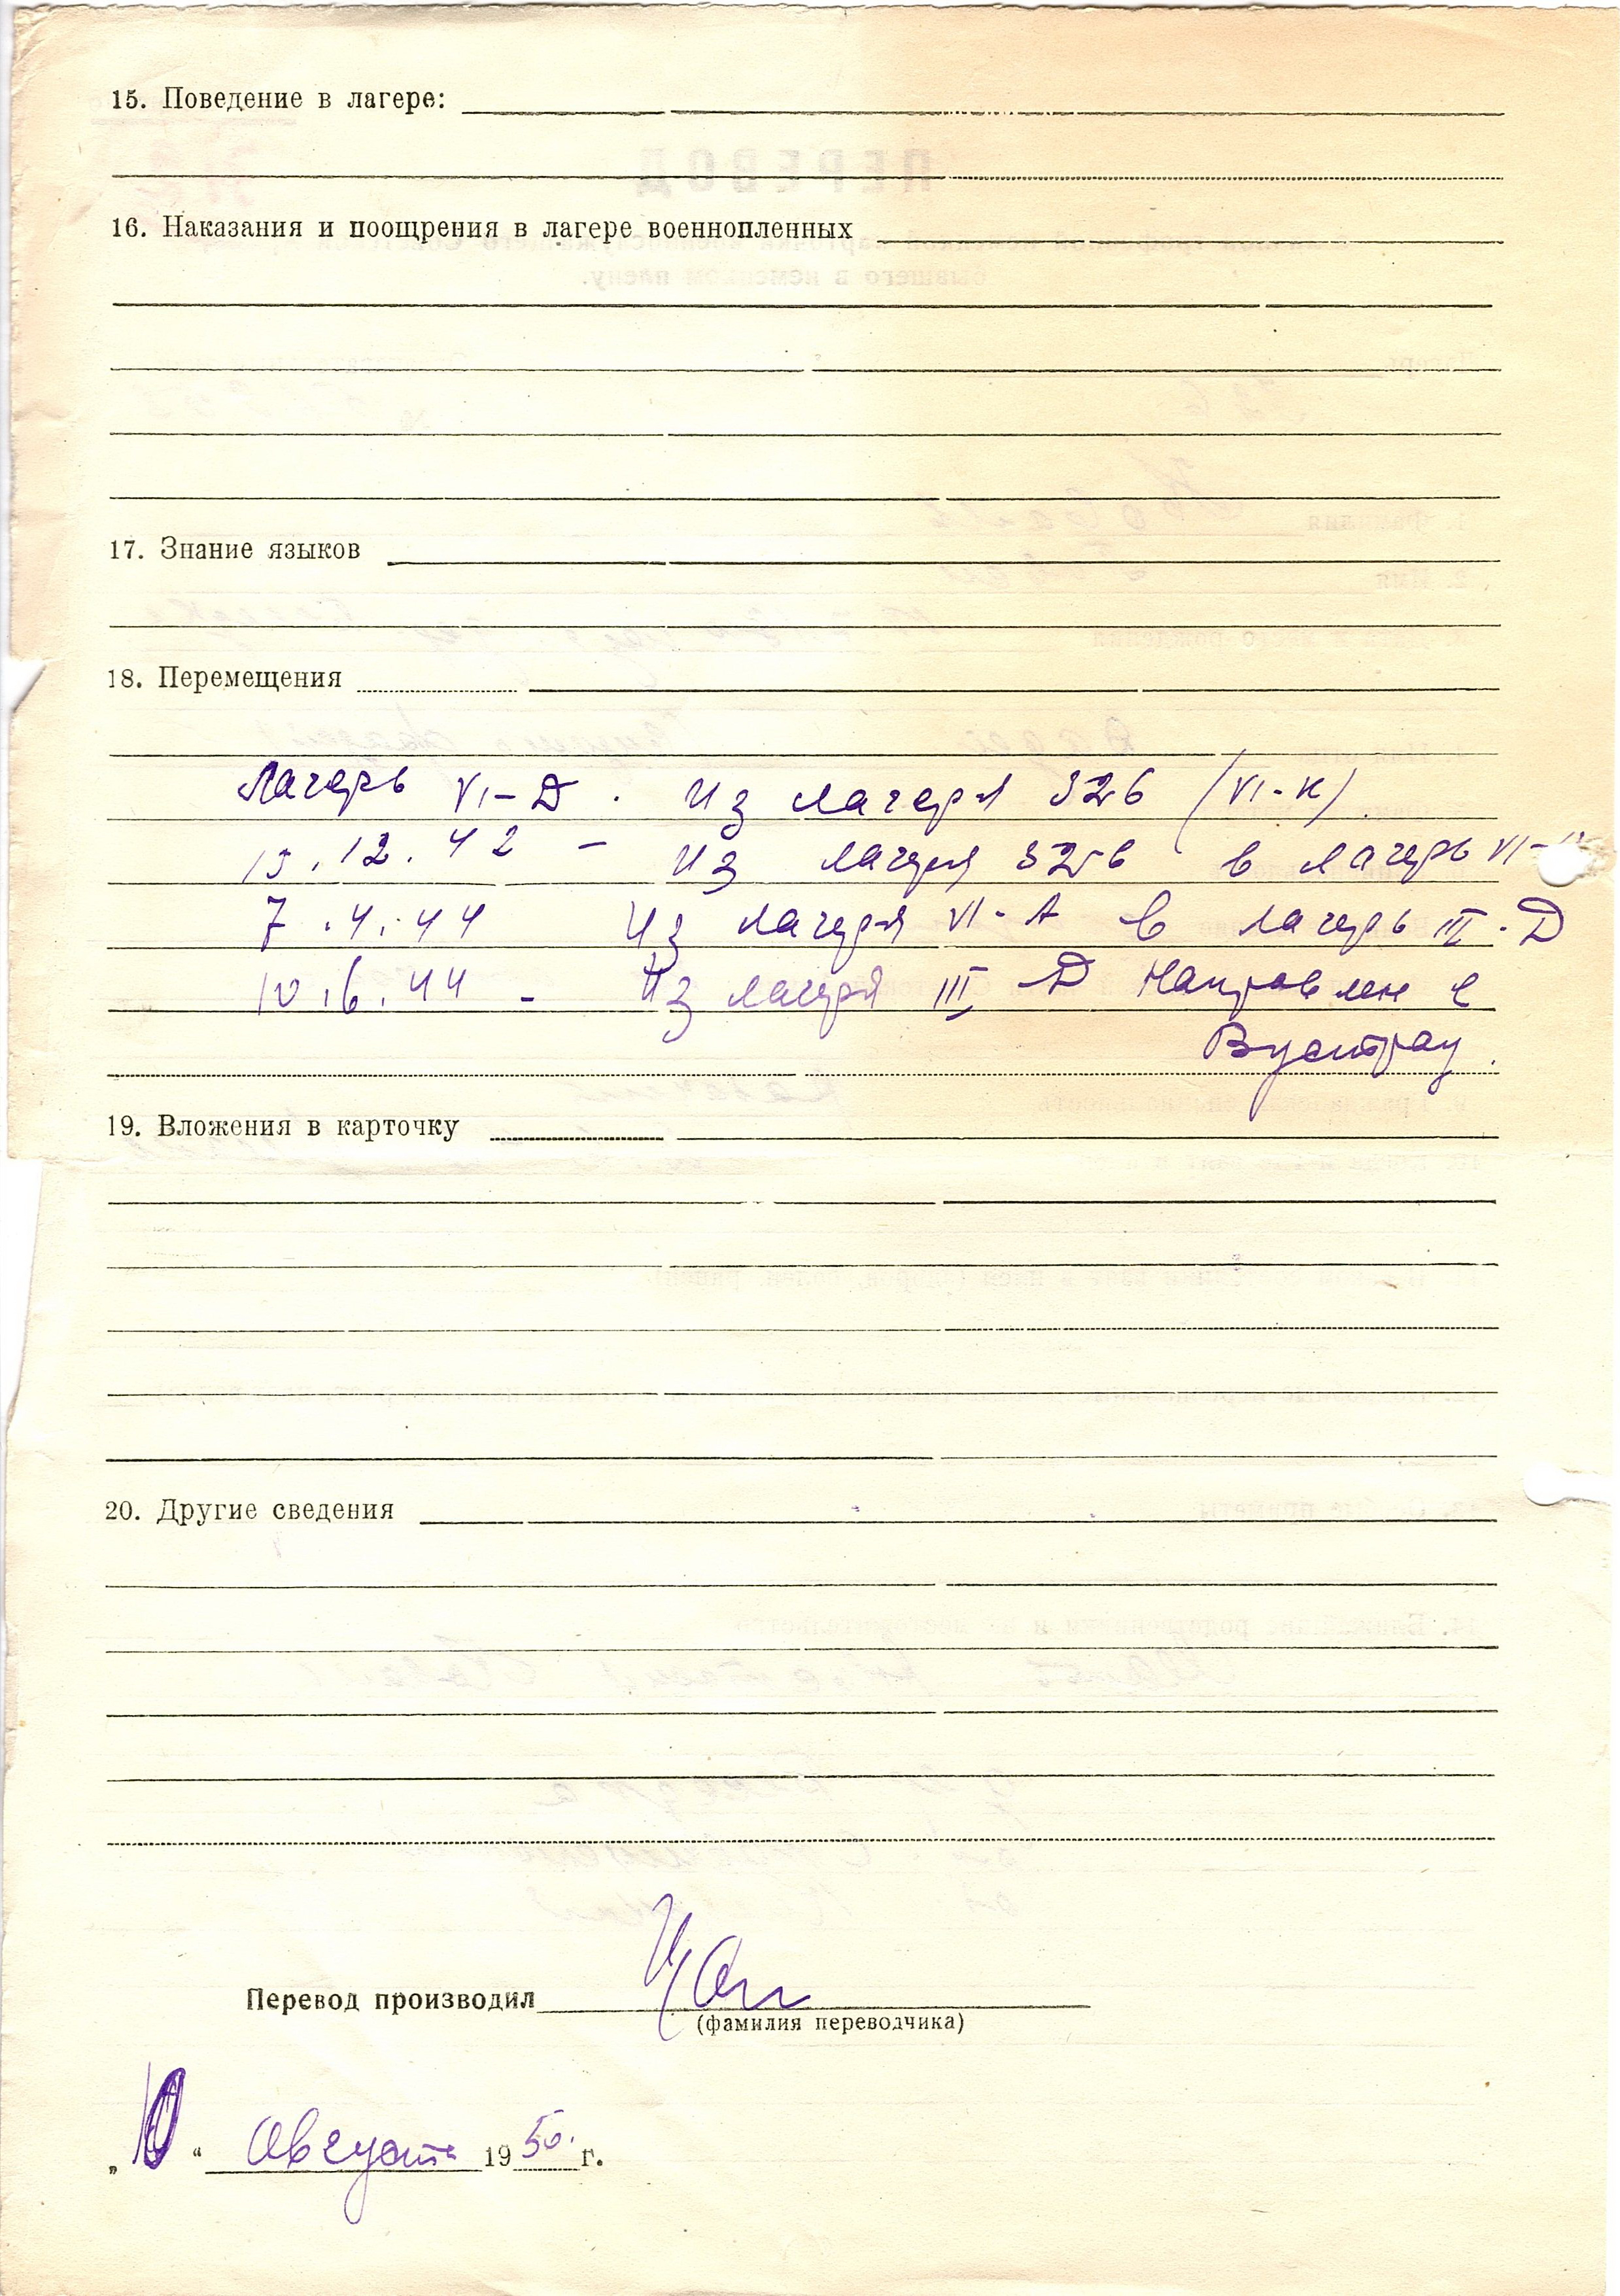 15. Поведение в лагере:
16. Наказания и поощрения в лагере военнопленных
17. Знание языков
18. Перемещения
Лагерь VI-Д. Из лагеря 326 (VI-К)
12.42 - Из лагеря 326 в лагерь VI-
7.4.44 Из лагеря VI-А в лагерь III-Д
10.6.44 - Из лагеря III-Д направлен в
Вустрау.
19. Вложения в карточку
20. Другие сведения
Перевод производил
(фамилия переводчика)
„10“ Августа 1950 г.